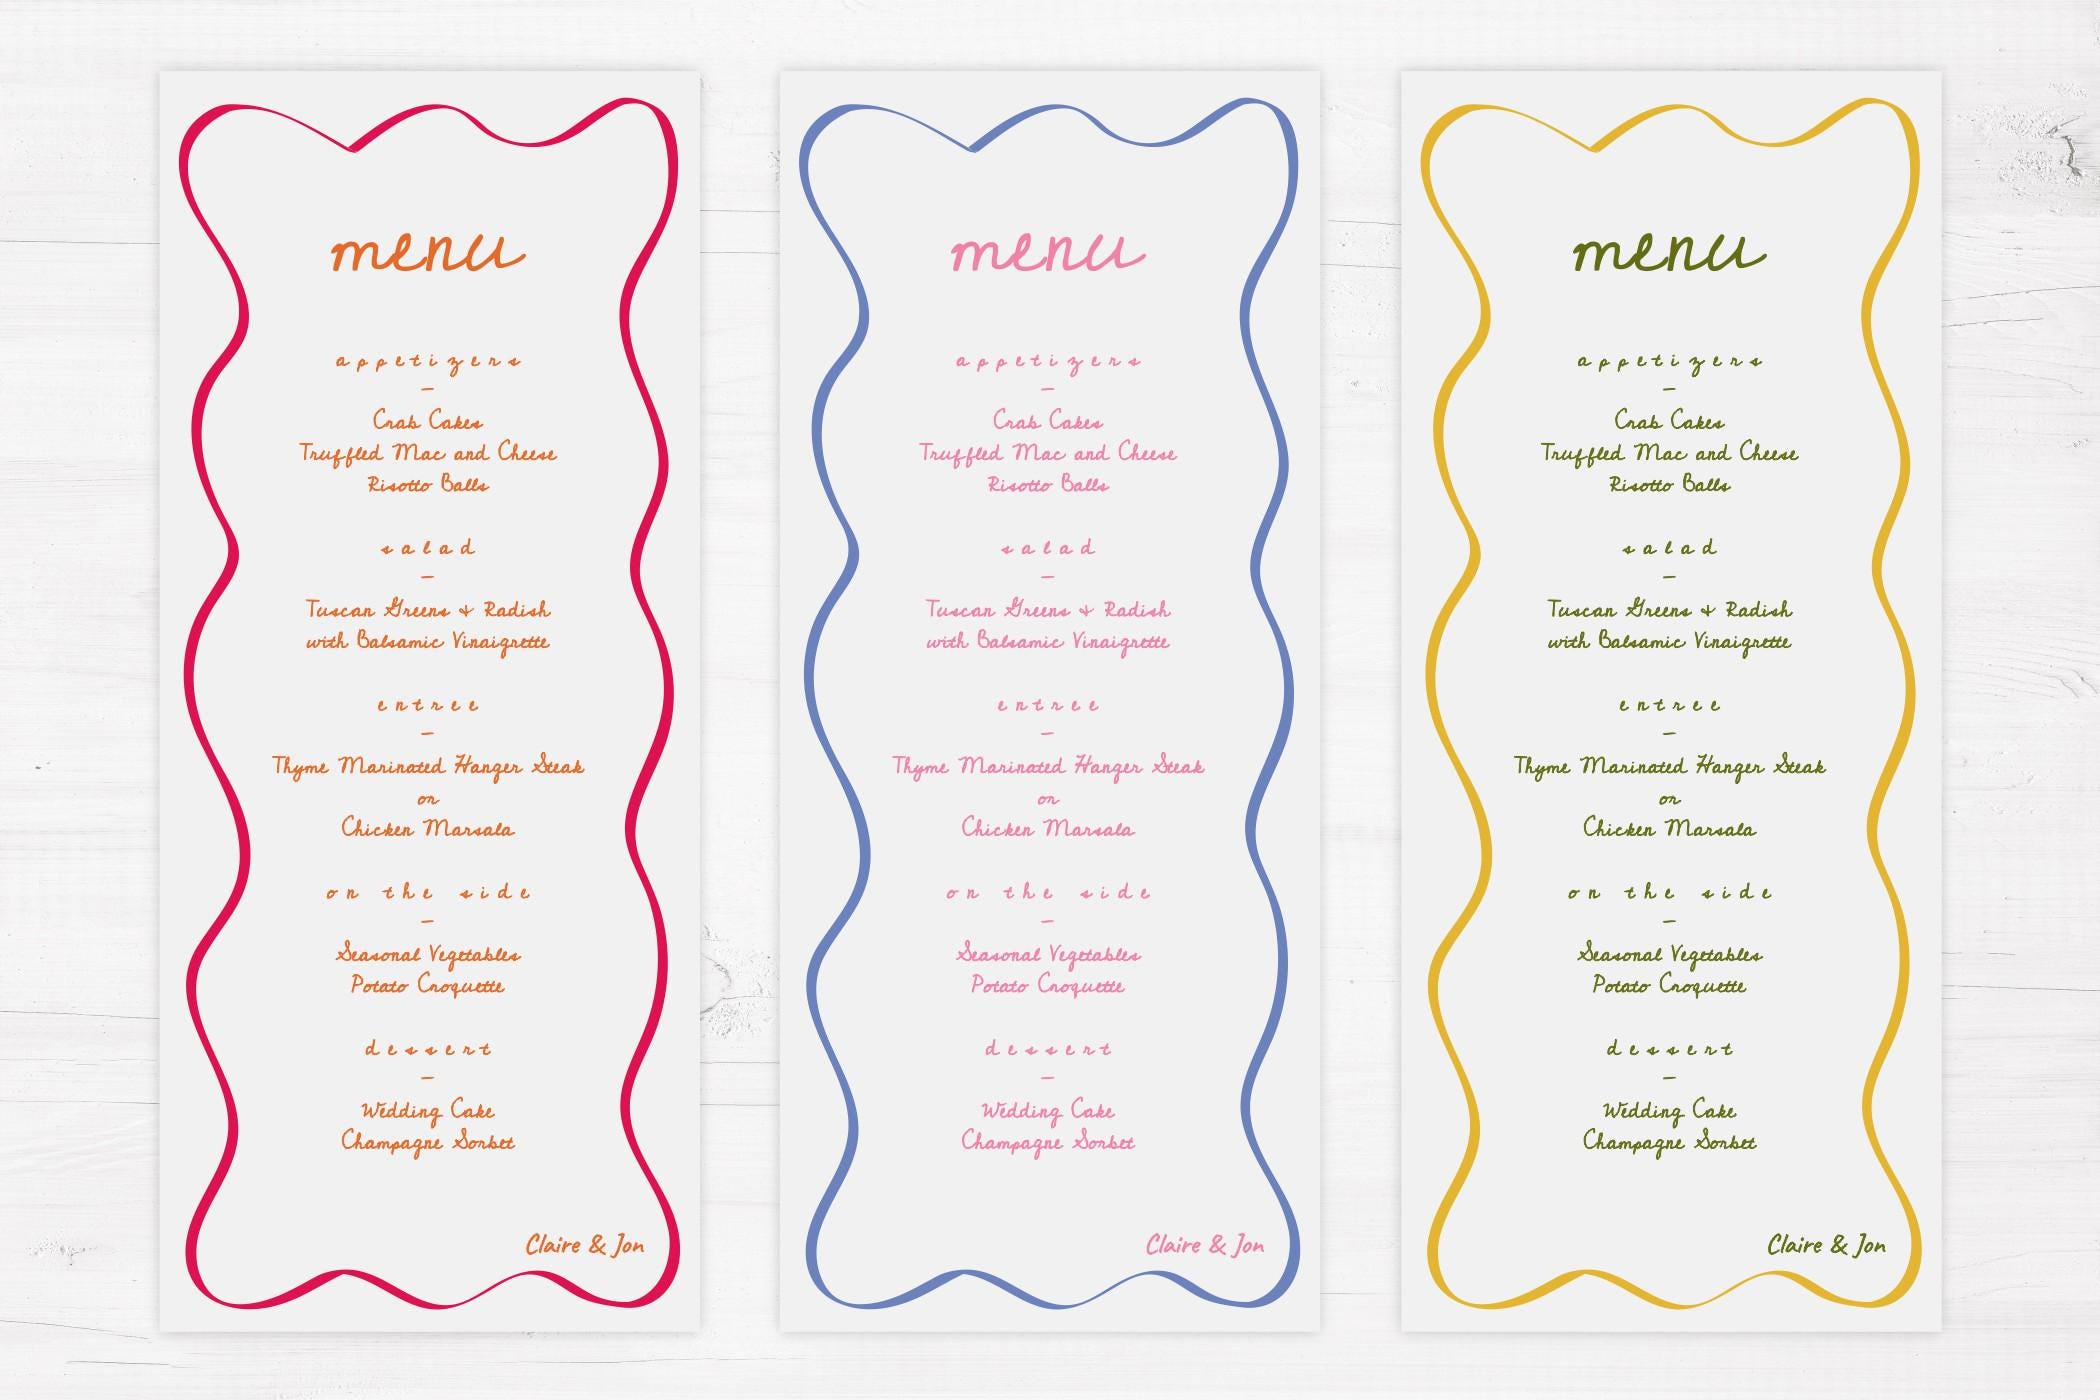 menu
appetizers
–
Crab Cakes
Truffled Mac and Cheese
Risotto Balls
salad
–
Tuscan Greens & Radish
with Balsamic Vinaigrette
entree
–
Thyme Marinated Hanger Steak
or
Chicken Marsala
on the side
–
Seasonal Vegetables
Potato Croquette
dessert
–
Wedding Cake
Champagne Sorbet
Claire & Jon
menu
appetizers
–
Crab Cakes
Truffled Mac and Cheese
Risotto Balls
salad
–
Tuscan Greens & Radish
with Balsamic Vinaigrette
entree
–
Thyme Marinated Hanger Steak
or
Chicken Marsala
on the side
–
Seasonal Vegetables
Potato Croquette
dessert
–
Wedding Cake
Champagne Sorbet
Claire & Jon
menu
appetizers
–
Crab Cakes
Truffled Mac and Cheese
Risotto Balls
salad
–
Tuscan Greens & Radish
with Balsamic Vinaigrette
entree
–
Thyme Marinated Hanger Steak
or
Chicken Marsala
on the side
–
Seasonal Vegetables
Potato Croquette
dessert
–
Wedding Cake
Champagne Sorbet
Claire & Jon